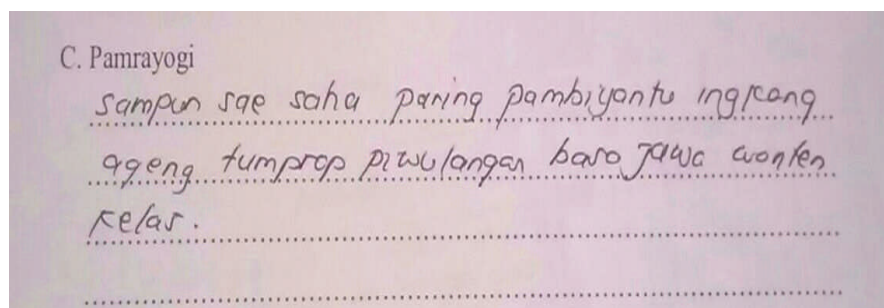 C. Pamrayogi
Sampun sae saha paring pambiyantu ingkang
ageng tumprap piwulangan baso Jawa wonten
kelas.